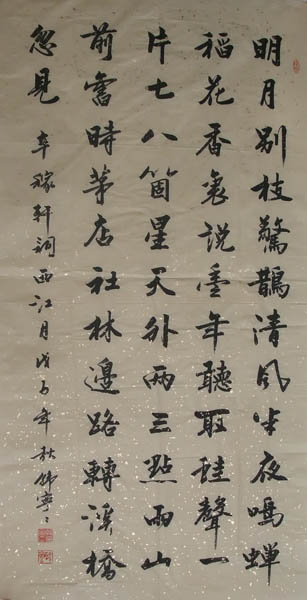 明月别枝驚鵲清风半夜鳴蟬
稻花香裏說豐年聽取蛙聲一
片七八箇星天外兩三點雨山
前舊時茅店社林邊路轉溪橋
忽見
辛稼軒詞西江月戊子年秋